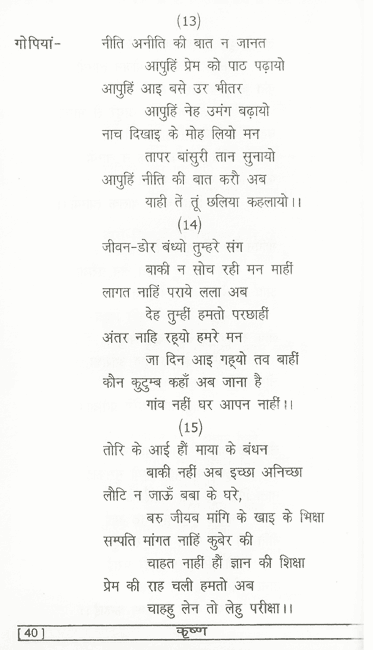 (13)
गोपियां- नीति अनीति की बात न जानत
आपुहिं प्रेम को पाठ पढ़ायो
आपुहिं आइ बसे उर भीतर
आपुहिं नेह उमंग बढ़ायो
नाच दिखाइ के मोह लियो मन
तापर बांसुरी तान सुनायो
आपुहिं नीति की बात करौ अब
याही तें तूं छलिया कहलायो।।
(14)
जीवन-डोर बंध्यो तुम्हरे संग
बाकी न सोच रही मन माहीं
लागत नाहिं पराये लला अब
देह तुम्हीं हमतो परछाहीं
अंतर नाहि रह्यो हमरे मन
जा दिन आइ गह्यो तव बाहीं
कौन कुटुम्ब कहाँ अब जाना है
गांव नहीं घर आपन नाहीं।।
(15)
तोरि के आई हौं माया के बंधन
बाकी नहीं अब इच्छा अनिच्छा
लौटि न जाऊँ बबा के घरे,
बरु जीयब मांगि के खाइ के भिक्षा
सम्पति मांगत नाहिं कुबेर की
चाहत नाहीं हौं ज्ञान की शिक्षा
प्रेम की राह चली हमतो अब
चाहहु लेन तो लेहु परीक्षा।।
[40] कृष्ण